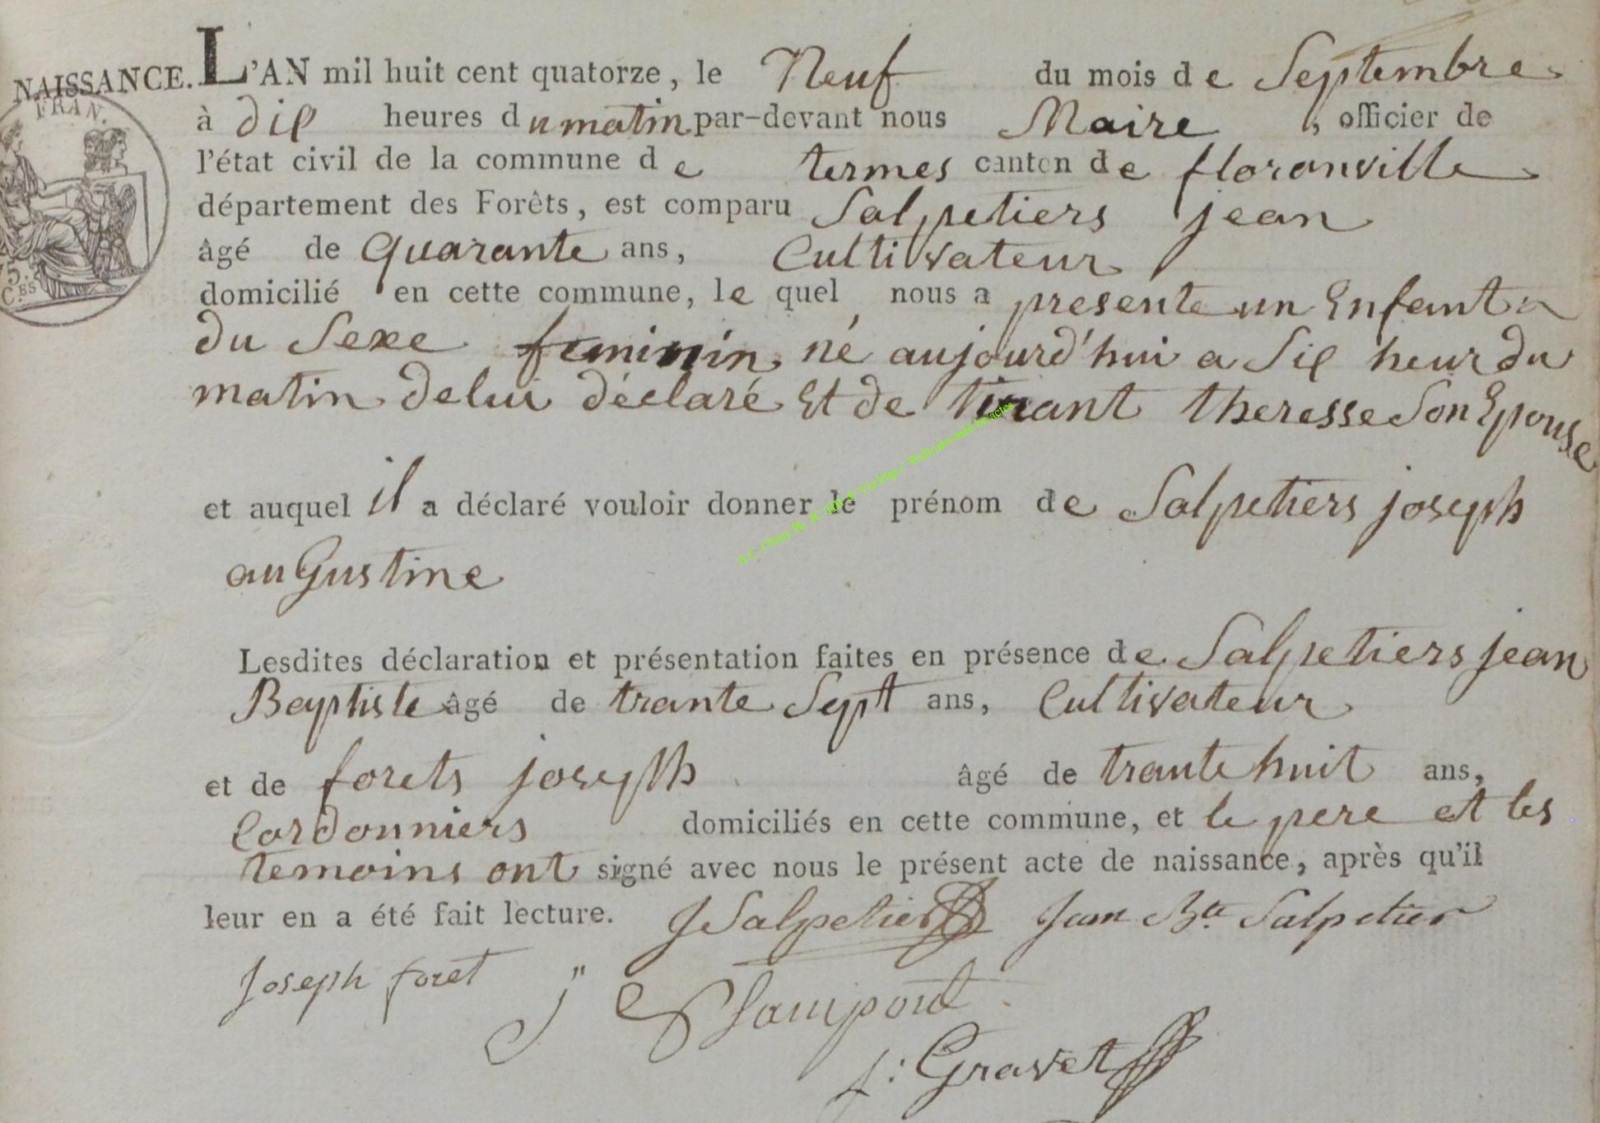 NAISSANCE. L'AN mil huit cent quatorze, le Neuf du mois de Septembre
FRAN.
à dix heures du matin par-devant nous Maire, officier de
l'état civil de la commune de termes canton de floranville
département des Forêts, est comparu Salpetiers jean
âgé de quarante ans, Cultivateur
5.
C.ES
domicilié en cette commune, le quel nous a presente un Enfant
du Sexe feminin, né aujourd'hui a Six heur du
matin de lui déclaré Et de tinant theresse Son Epouse
et auquel il a déclaré vouloir donner le prénom de Salpetiers joseph
auGustine
Lesdites déclaration et présentation faites en présence de Salpetiers jean
Baptiste âgé de trante Sept ans, Cultivateur
et de forets joseph âgé de trante huit ans,
Cordonniers domiciliés en cette commune, et le pere et les
temoins ont signé avec nous le présent acte de naissance, après qu'il
leur en a été fait lecture. J Salpetier Jean Bte Salpetier
Joseph foret
f: Gravet